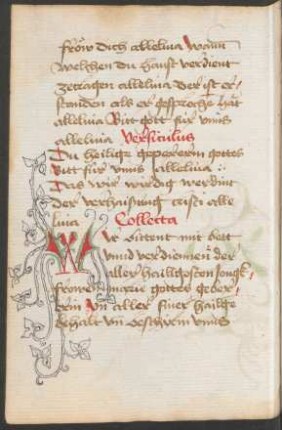 fröw dich allelüia Wann
welchen du haüst verdient
zetragen allelüia der ist er¬
standen als er gesproche hät
allelüia Bitt gott für vnns
allelüia Versiculus
Du heilige geperrerin gottes
Bitt für vnns (allelüia :
Das wir wirdig werdint
der verhaissung cristi alle
lüia Collecta
Wir bittent mit bett
vnnd verdiennen der
aller hailigosten Jungk¬
frowen marie gottes geber¬
erin vn aller siner hailgē
behalt vn beschirm vnns